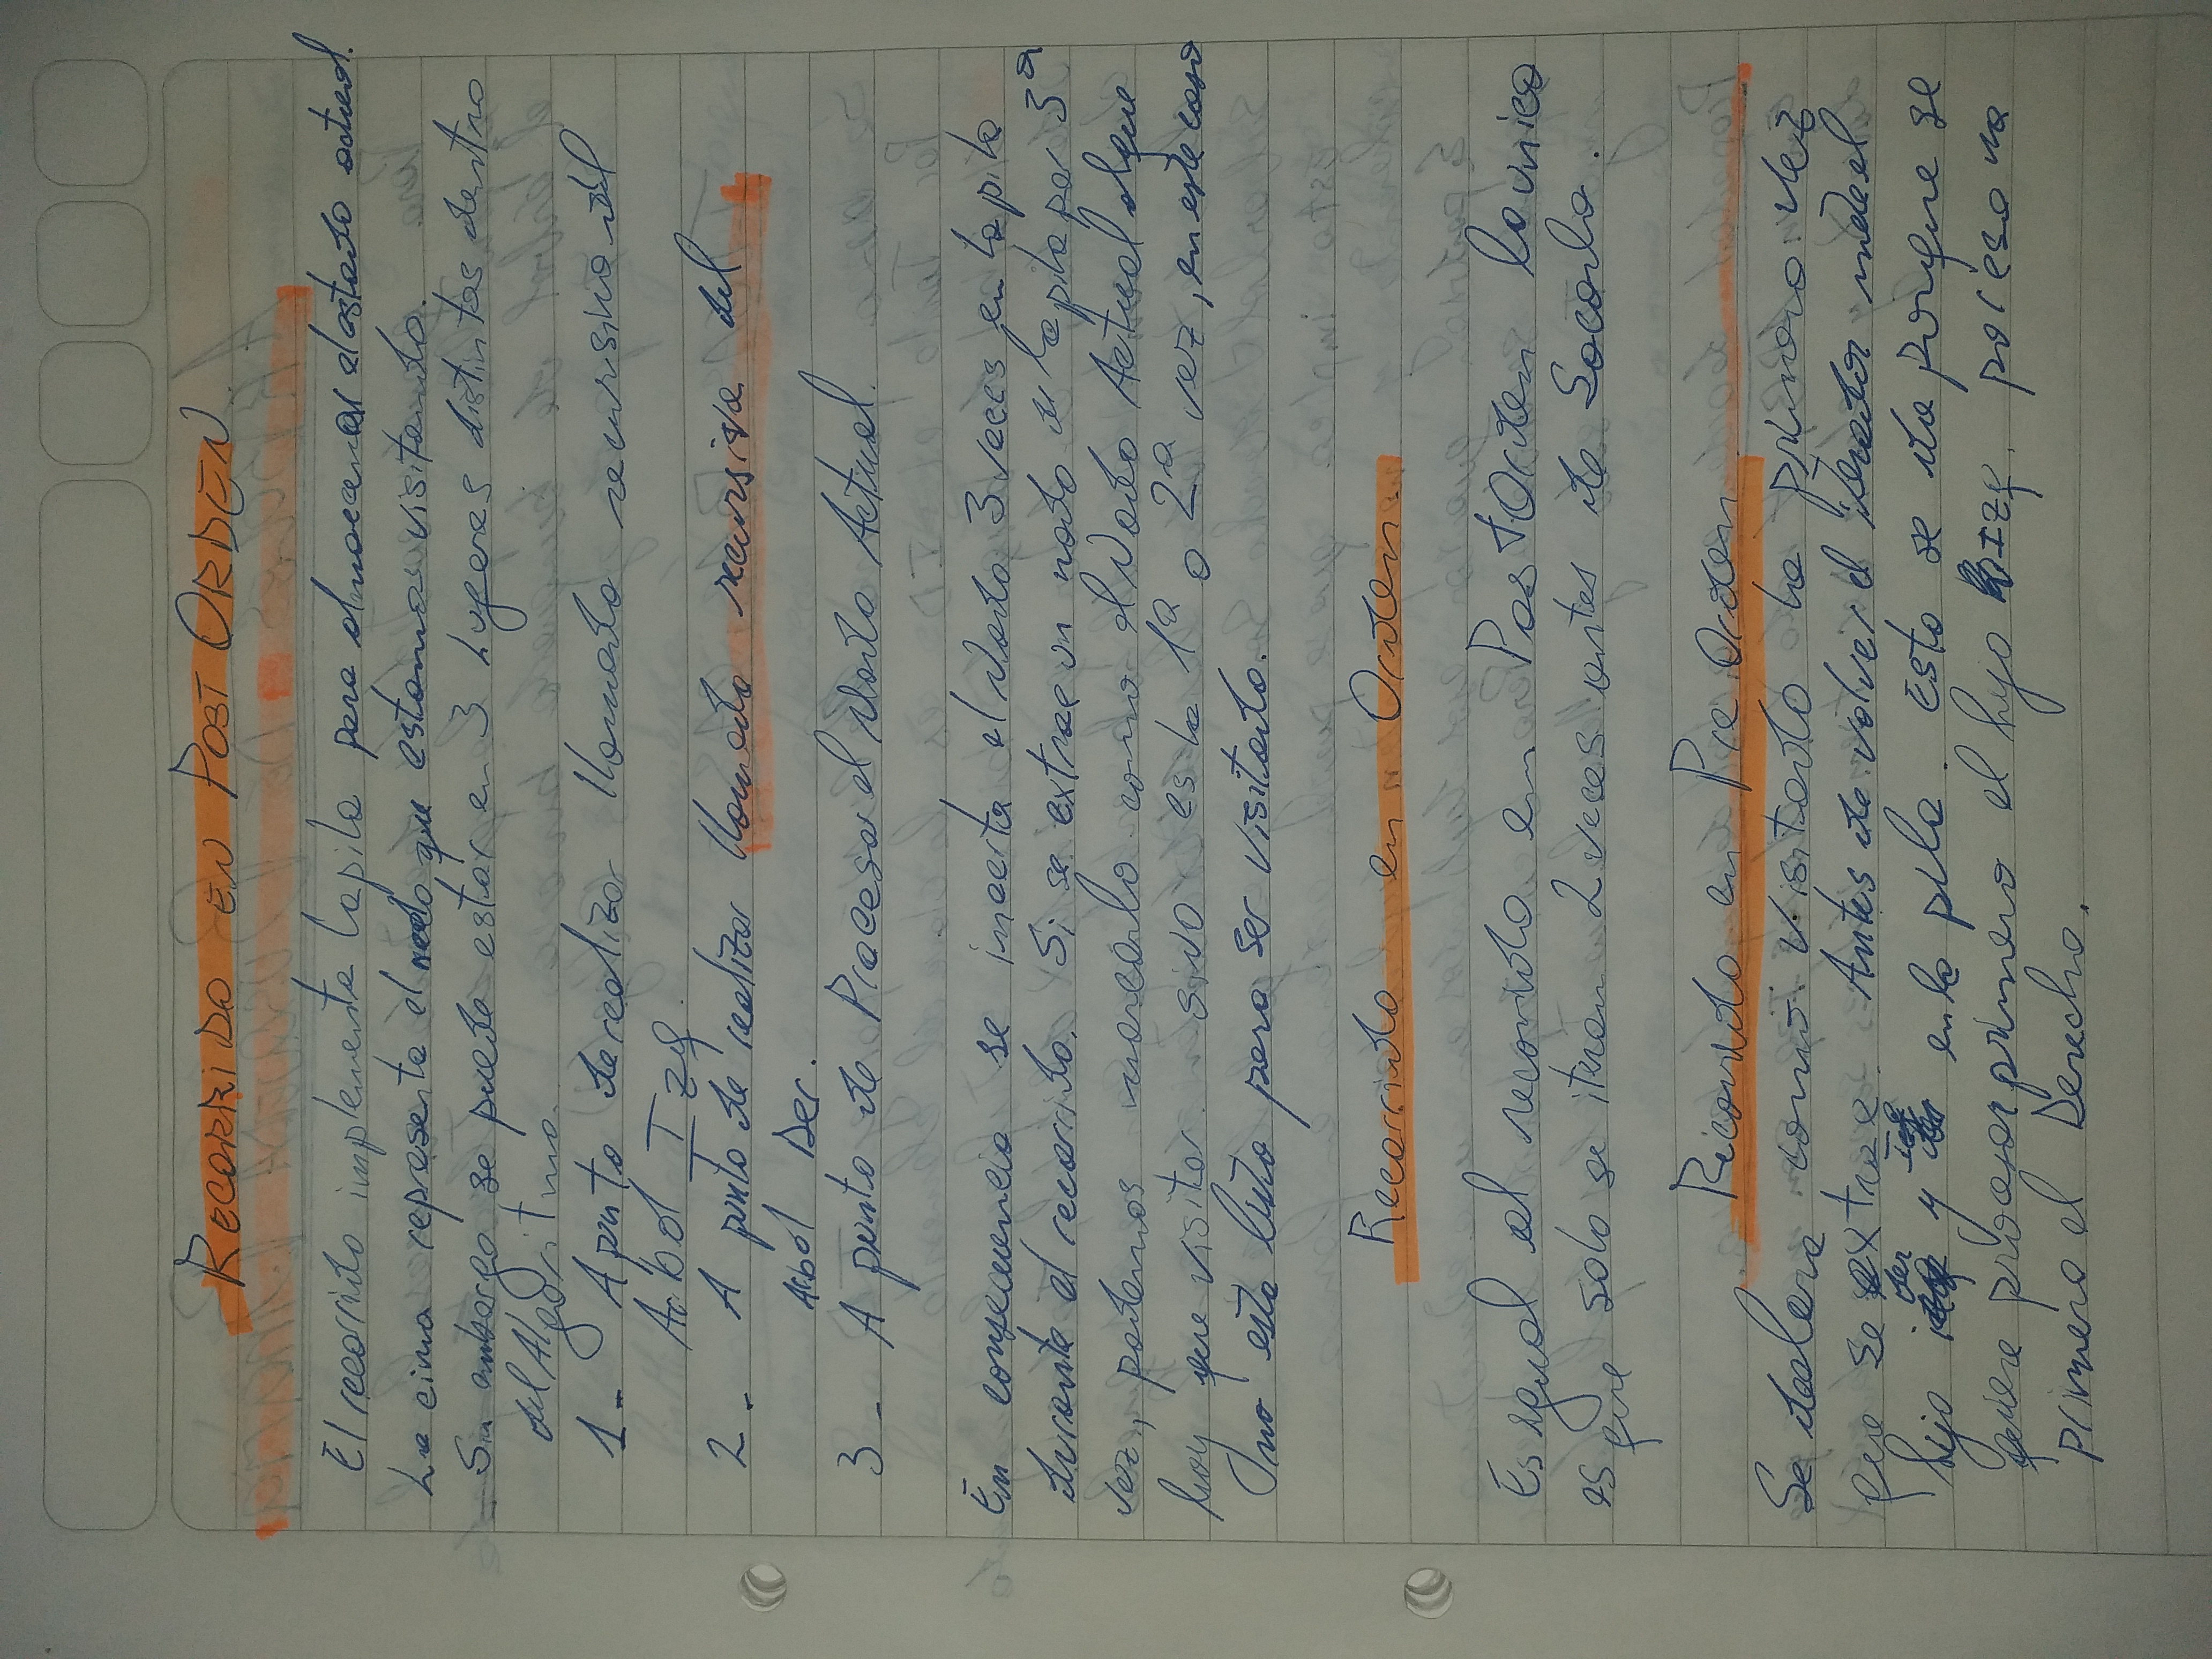 RECORRIDO EN POST ORDEN.
El recorrido implementa la pila para almacenar el estado actual.
La cima representa el nodo que estamos visitando.
Sin embargo se puede estar en 3 Lugares distintos dentro
del Algoritmo.
1- A punto de realizar llamada recursiva del
Arbol Izq.
2- A punto de realizar llamada recursiva del
Arbol Der.
3- A punto de Procesar el Nodo Actual.
En consecuencia se incerta el Nodo 3 veces en la pila
durante el recorrido. Si se extrae un nodo de la pila por 3ª
vez, podemos marcarlo como el Nodo Actual al que
hay que visitar. SiNO es la 1ª o 2ª vez, en este caso
no esta listo para ser visitado.
Recorrido en Orden.
Es igual al recorrido en PostOrden lo unico
es que solo se iteran 2 veces antes de Sacarlo.
Recorrido en Pre Orden
Se declara como visitado la primera vez
que se extrae. Antes de volver el iterador mete el
hijo der y Izq en la pila. Esto se da porque se
quiere procesar primero el hijo Izq. por eso va
primero el Derecho.